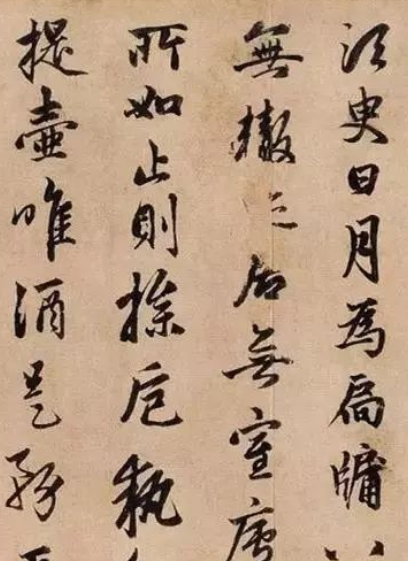 須臾日月為扃牖
無轍迹居無室廬
所如止則操卮執
提壺唯酒是務